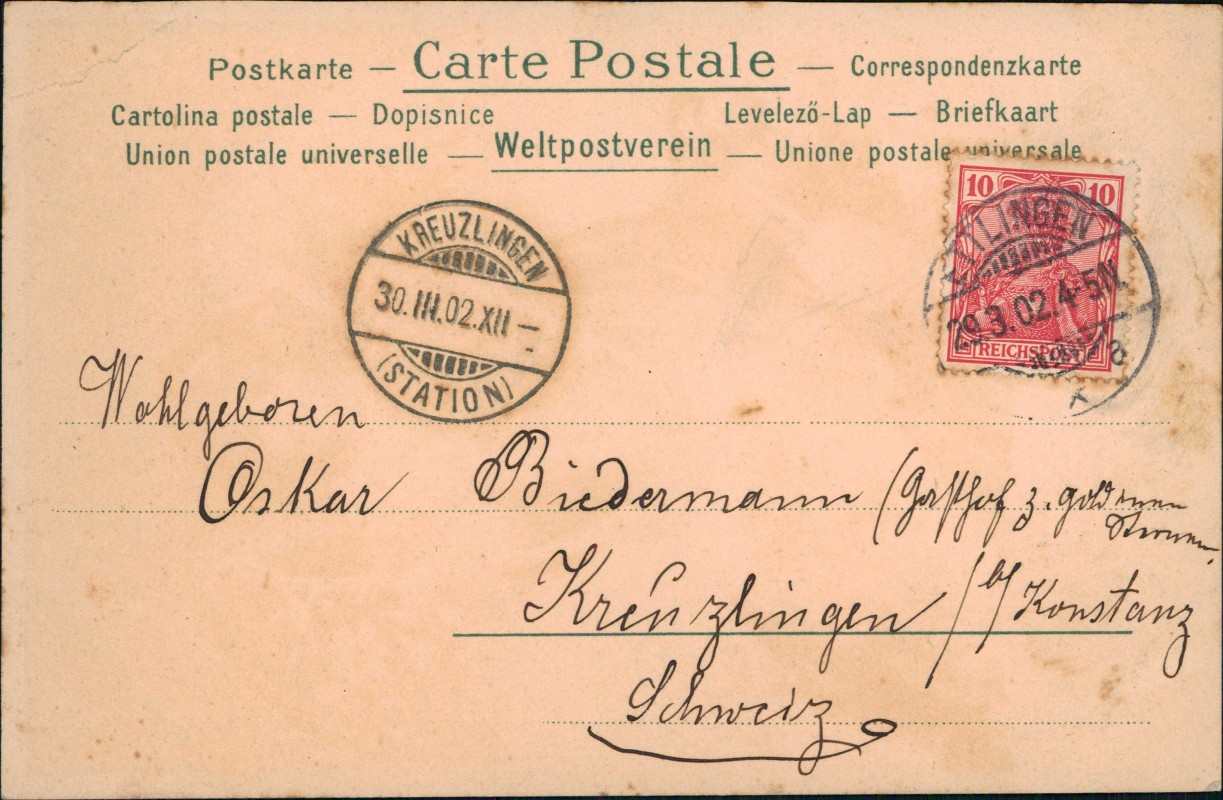 Postkarte — Carte Postale — Correspondenzkarte
Cartolina postale — Dopisnice Levelező-Lap — Briefkaart
Union postale universelle — Weltpostverein — Unione postale universale
10 10
REICHSPOST
29.3.02.4-5N.
KREUZLINGEN
30.III.02.XII —
(STATION)
Wohlgeboren
Oskar Biedermann (Gasthof z. goldenen
Sternen,
Kreuzlingen / b/ Konstanz
Schweiz